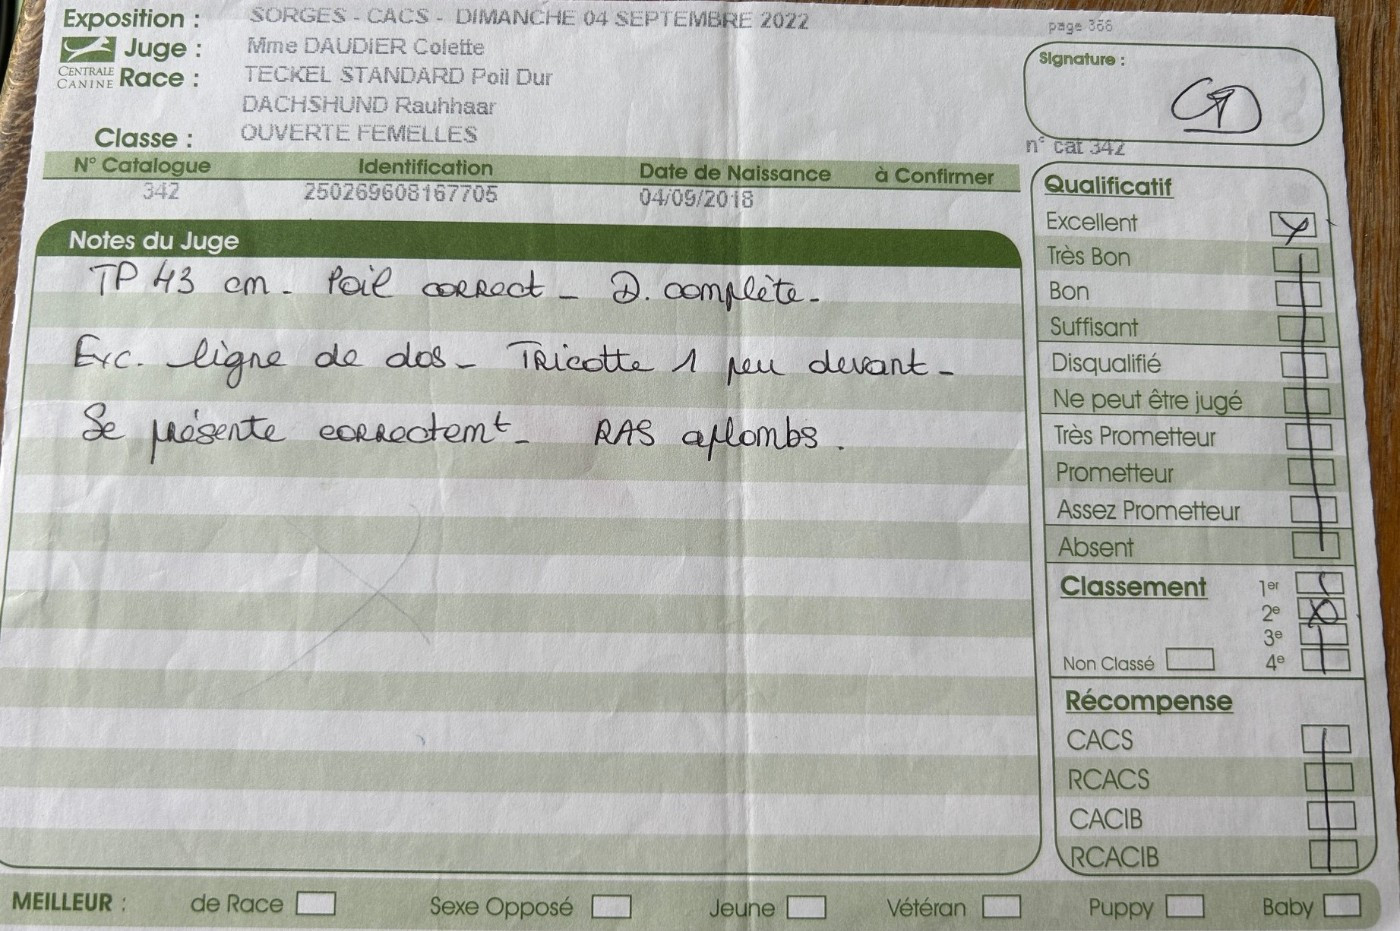 Exposition : SORGES - CACS - DIMANCHE 04 SEPTEMBRE 2022
page 366
Juge : Mme DAUDIER Colette
CENTRALE CANINE
Race : TECKEL STANDARD Poil Dur
DACHSHUND Rauhhaar
Classe : OUVERTE FEMELLES
Signature :
n° cat 342
N° Catalogue Identification Date de Naissance à Confirmer
342 250269608167705 04/09/2018
Notes du Juge
TP 43 cm - Poil correct - D. complète -
Exc. ligne de dos - Tricotte 1 peu devant -
Se présente correctemt - RAS aplombs .
Qualificatif
Excellent
Très Bon
Bon
Suffisant
Disqualifié
Ne peut être jugé
Très Prometteur
Prometteur
Assez Prometteur
Absent
Classement 1er
2e
3e
Non Classé 4e
Récompense
CACS
RCACS
CACIB
RCACIB
MEILLEUR : de Race Sexe Opposé Jeune Vétéran Puppy Baby